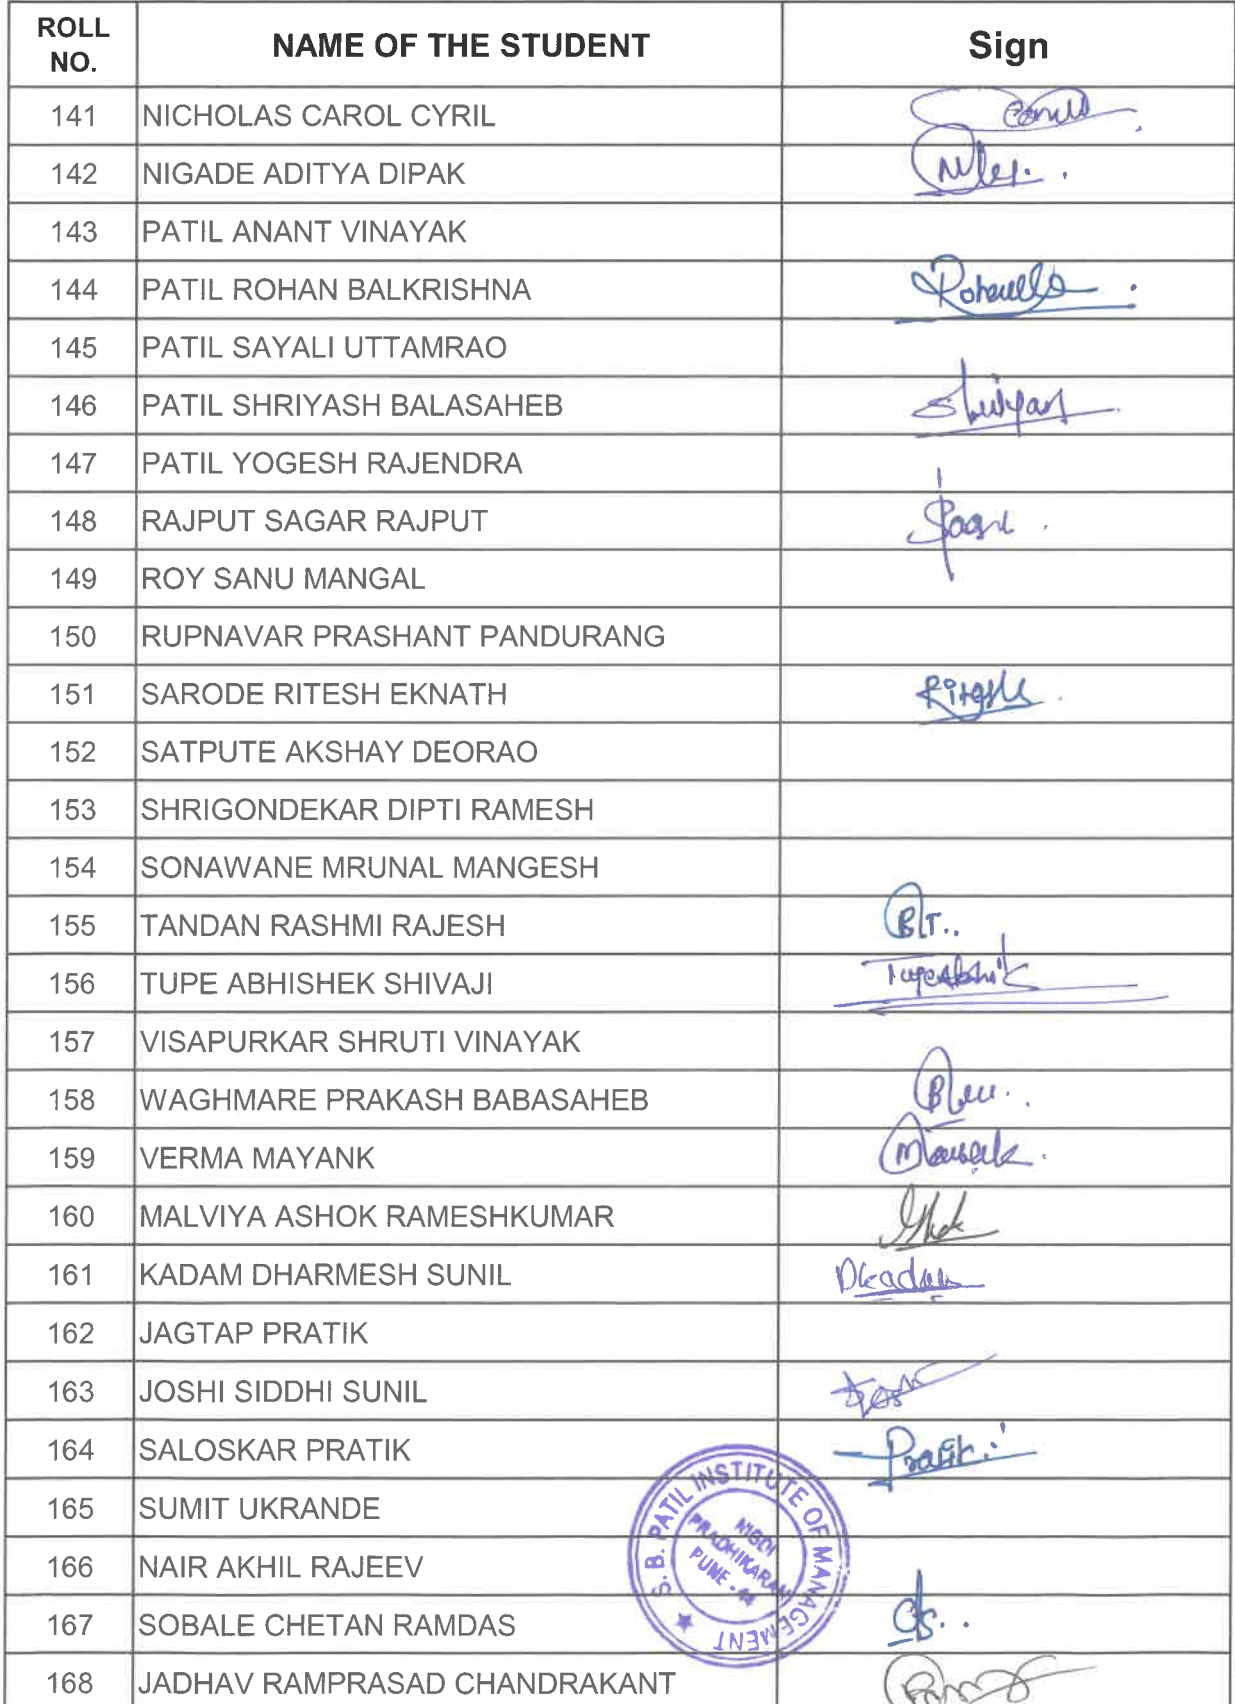 ROLL NO. NAME OF THE STUDENT Sign
141 NICHOLAS CAROL CYRIL
142 NIGADE ADITYA DIPAK
143 PATIL ANANT VINAYAK
144 PATIL ROHAN BALKRISHNA
145 PATIL SAYALI UTTAMRAO
146 PATIL SHRIYASH BALASAHEB
147 PATIL YOGESH RAJENDRA
148 RAJPUT SAGAR RAJPUT
149 ROY SANU MANGAL
150 RUPNAVAR PRASHANT PANDURANG
151 SARODE RITESH EKNATH
152 SATPUTE AKSHAY DEORAO
153 SHRIGONDEKAR DIPTI RAMESH
154 SONAWANE MRUNAL MANGESH
155 TANDAN RASHMI RAJESH
156 TUPE ABHISHEK SHIVAJI
157 VISAPURKAR SHRUTI VINAYAK
158 WAGHMARE PRAKASH BABASAHEB
159 VERMA MAYANK
160 MALVIYA ASHOK RAMESHKUMAR
161 KADAM DHARMESH SUNIL Dkadam
162 JAGTAP PRATIK
163 JOSHI SIDDHI SUNIL
164 SALOSKAR PRATIK Pratik
165 SUMIT UKRANDE
166 NAIR AKHIL RAJEEV
167 SOBALE CHETAN RAMDAS
168 JADHAV RAMPRASAD CHANDRAKANT
S. B. PATIL INSTITUTE OF MANAGEMENT
NIGDI
PRADHIKARAN
PUNE - 44